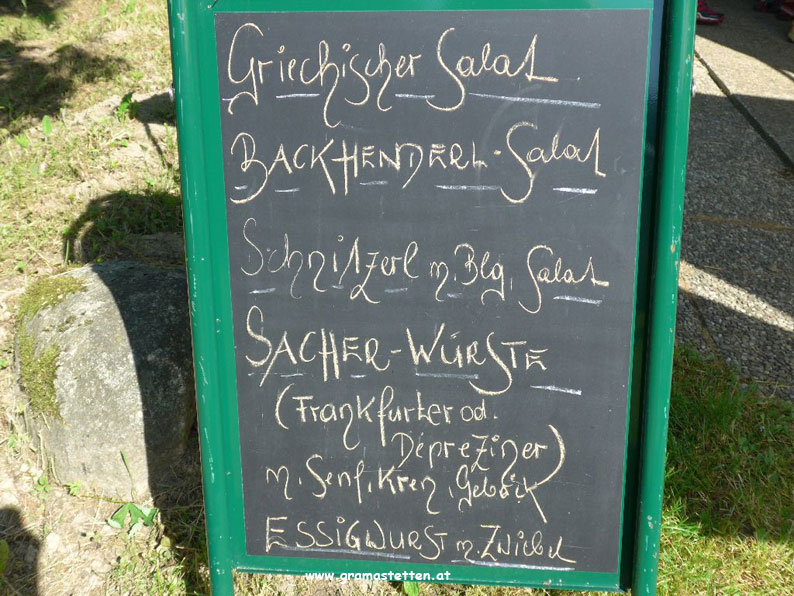 Griechischer Salat
BACKHENDERL-Salat
Schnitzerl m. Blg. Salat
SACHER-WÜRSTE
(Frankfurter od.
Depreziner)
m. Senf, Kren, Gebäck
ESSIGWURST m. Zwiebel
www.gramastetten.at